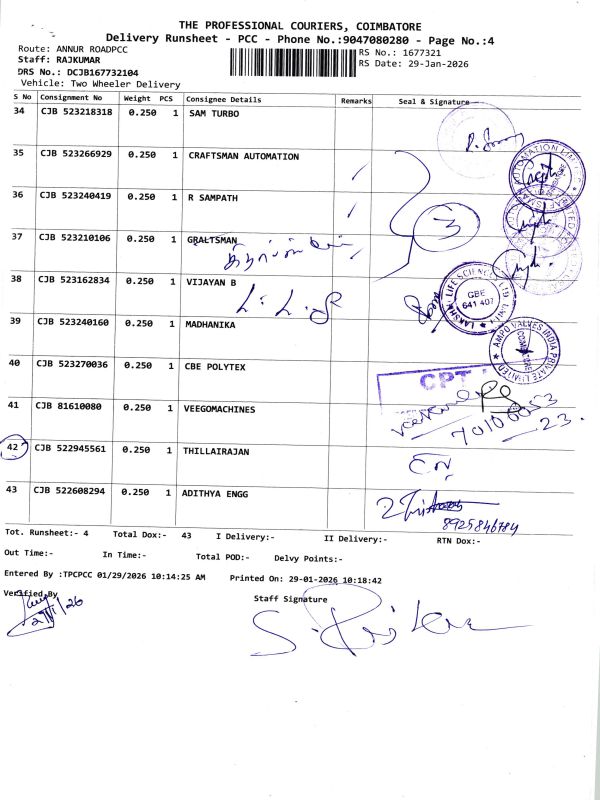 THE PROFESSIONAL COURIERS, COIMBATORE
Delivery Runsheet - PCC - Phone No.:9047080280 - Page No.:4
Route: ANNUR ROADPCC
RS No.: 1677321
Staff: RAJKUMAR
RS Date: 29-Jan-2026
DRS No.: DCJB167732104
Vehicle: Two Wheeler Delivery
S No Consignment No Weight PCS Consignee Details Remarks Seal & Signature
34 CJB 523218318 0.250 1 SAM TURBO
35 CJB 523266929 0.250 1 CRAFTSMAN AUTOMATION
36 CJB 523240419 0.250 1 R SAMPATH
3
37 CJB 523210106 0.250 1 GRALTSMAN
38 CJB 523162834 0.250 1 VIJAYAN B
LAKSHMI LIFE SCIENCES
CBE
641 407
39 CJB 523240160 0.250 1 MADHANIKA
AMPO VALVES INDIA PRIVATE LIMITED
40 CJB 523270036 0.250 1 CBE POLYTEX
CPT
41 CJB 81610080 0.250 1 VEEGOMACHINES
23.
42 CJB 522945561 0.250 1 THILLAIRAJAN
43 CJB 522608294 0.250 1 ADITHYA ENGG
8925846784
Tot. Runsheet:- 4 Total Dox:- 43 I Delivery:- II Delivery:- RTN Dox:-
Out Time:- In Time:- Total POD:- Delvy Points:-
Entered By :TPCPCC 01/29/2026 10:14:25 AM Printed On: 29-01-2026 10:18:42
Verified By Staff Signature